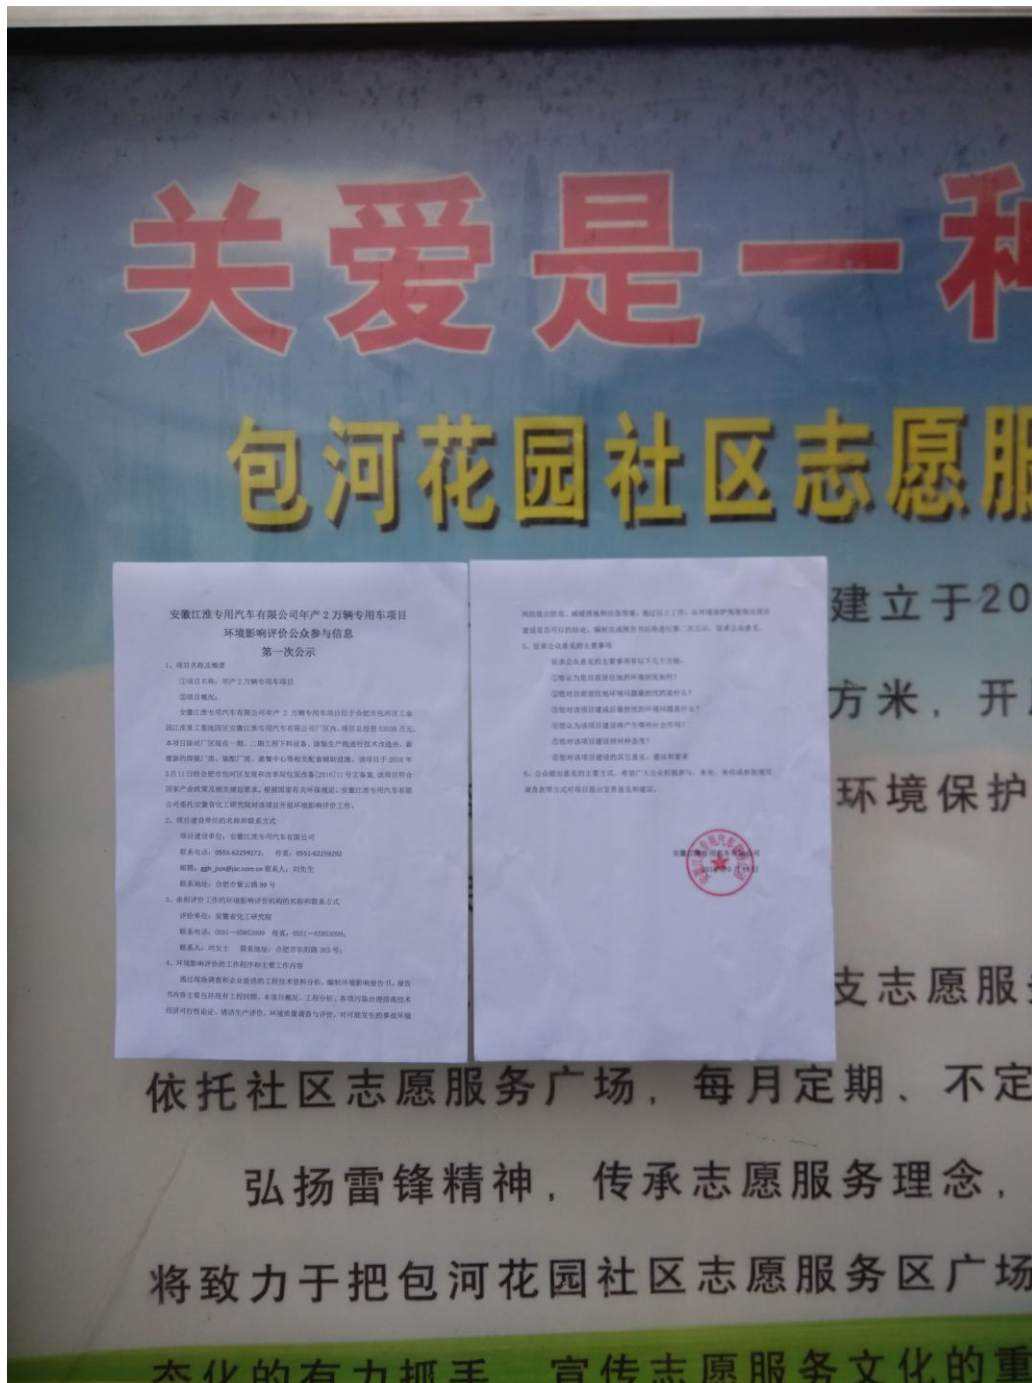 关爱是一种
包河花园社区志愿服
建立于20
方米，开
环境保护
支志愿服务
依托社区志愿服务广场，每月定期、不定
弘扬雷锋精神，传承志愿服务理念，
将致力于把包河花园社区志愿服务区广场
态化的有力抓手，宣传志愿服务文化的重
安徽江淮专用汽车有限公司年产2万辆专用车项目
环境影响评价公众参与信息
第一次公示
1、项目名称及概要
①项目名称：年产2万辆专用车项目
②项目概况：
安徽江淮专用汽车有限公司年产 2 万辆专用车项目位于合肥市包河区工业
园江淮重工基地园区安徽江淮专用汽车有限公司厂区内，项目总投资53038万元。
本项目除对厂区现有一期、二期工程下料设备、涂装生产线进行技术改造外，新
建新的焊接厂房、装配厂房、就餐中心等相关配套辅助设施。该项目于2016年
3月11日经合肥市包河区发展和改革局包发改备[2016]11号文备案，该项目符合
国家产业政策及相关规划要求。根据国家有关环保规定，安徽江淮专用汽车有限
公司委托安徽省化工研究院对该项目开展环境影响评价工作。
2、项目建设单位的名称和联系方式
项目建设单位：安徽江淮专用汽车有限公司
联系电话：0551-62259272， 传真：0551-62259292
邮箱：ggh_jszx@jac.com.cn 联系人：刘先生
联系地址：合肥市紫云路99号
3、承担评价工作的环境影响评价机构的名称和联系方式
评价单位：安徽省化工研究院
联系人：刘女士 联系地址：合肥市阜阳路363号；
4、环境影响评价的工作程序和主要工作内容
通过现场调查和企业提供的工程技术资料分析，编制环境影响报告书。报告
书内容主要包括现有工程回顾、本项目概况、工程分析、各项污染治理措施技术
经济可行性论证、清洁生产评价、环境质量调查与评价，对可能发生的事故环境
风险提出防范、减缓措施和应急预案。通过以上工作，从环境保护角度得出项目
建设是否可行的结论。编制完成报告书后将进行第二次公示，征求公众意见。
5、征求公众意见的主要事项
征求公众意见的主要事项有以下几个方面：
①您认为您目前居住地的环境质量如何？
②您对目前居住地环境问题最担忧的是什么？
③您对该项目建成后最担忧的环境问题是什么？
④您认为该项目建设将产生哪些社会作用？
⑤您对该项目建设持何种态度？
⑥您对该项目建设的其它意见、建议和要求
6、公众提出意见的主要方式。希望广大公众积极参与，来电、来信或参加填写
调查表等方式对项目提出宝贵意见和建议。
安徽江淮专用汽车有限公司